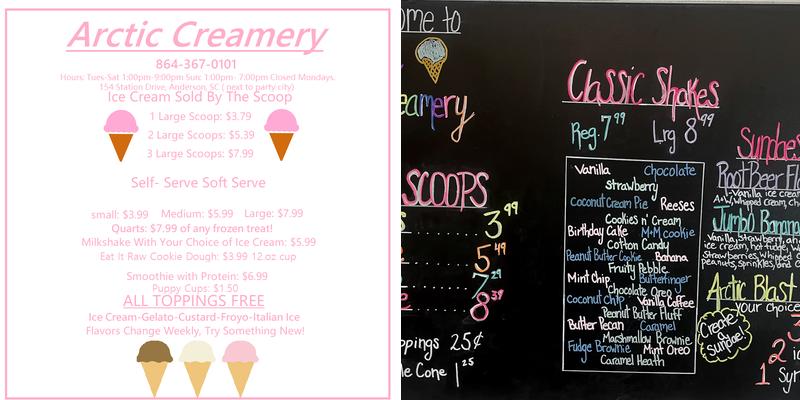 Arctic Creamery
864-367-0101
Hours: Tues-Sat 1:00pm-9:00pm Sun: 1:00pm- 7:00pm Closed Mondays.
154 Station Drive, Anderson, SC ( next to party city)
Ice Cream Sold By The Scoop
1 Large Scoop: $3.79
2 Large Scoops: $5.39
3 Large Scoops: $7.99
Self- Serve Soft Serve
small: $3.99 Medium: $5.99 Large: $7.99
Quarts: $7.99 of any frozen treat!
Milkshake With Your Choice of Ice Cream: $5.99
Eat It Raw Cookie Dough: $3.99 12.oz cup
Smoothie with Protein: $6.99
Puppy Cups: $1.50
ALL TOPPINGS FREE
Ice Cream-Gelato-Custard-Froyo-Italian Ice
Flavors Change Weekly, Try Something New!
ome to
eamery
SCOOPS
s ...... 3.99
...... 5.49
...... 7.29
e ...... 8.39
ppings 25¢
le Cone 1.25
Classic Shakes
Reg. 7.99 Lrg 8.99
Vanilla Chocolate
Strawberry
Coconut Cream Pie Reeses
Cookies n' Cream
Birthday Cake M+M cookie
Cotton Candy
Peanut Butter Cookie Banana
Fruity Pebble
Mint Chip Butterfinger
Chocolate Oreo
Coconut chip Vanilla Coffee
Peanut Butter Fluff
Butter Pecan Caramel
Marshmallow Brownie
Fudge Brownie Mint Oreo
Caramel Heath
Sundaes
Root Beer Flo
1-Vanilla ice crea
A+W, Whipped cream, ch
Jumbo Banana
Vanilla, Strawberry, an
ice cream, hot fudge, w
Strawberries, Whipped c
peanuts, sprinkles, and C
Arctic Blast
your choice
Create a Sundae!
3
2 ic
1 Syr